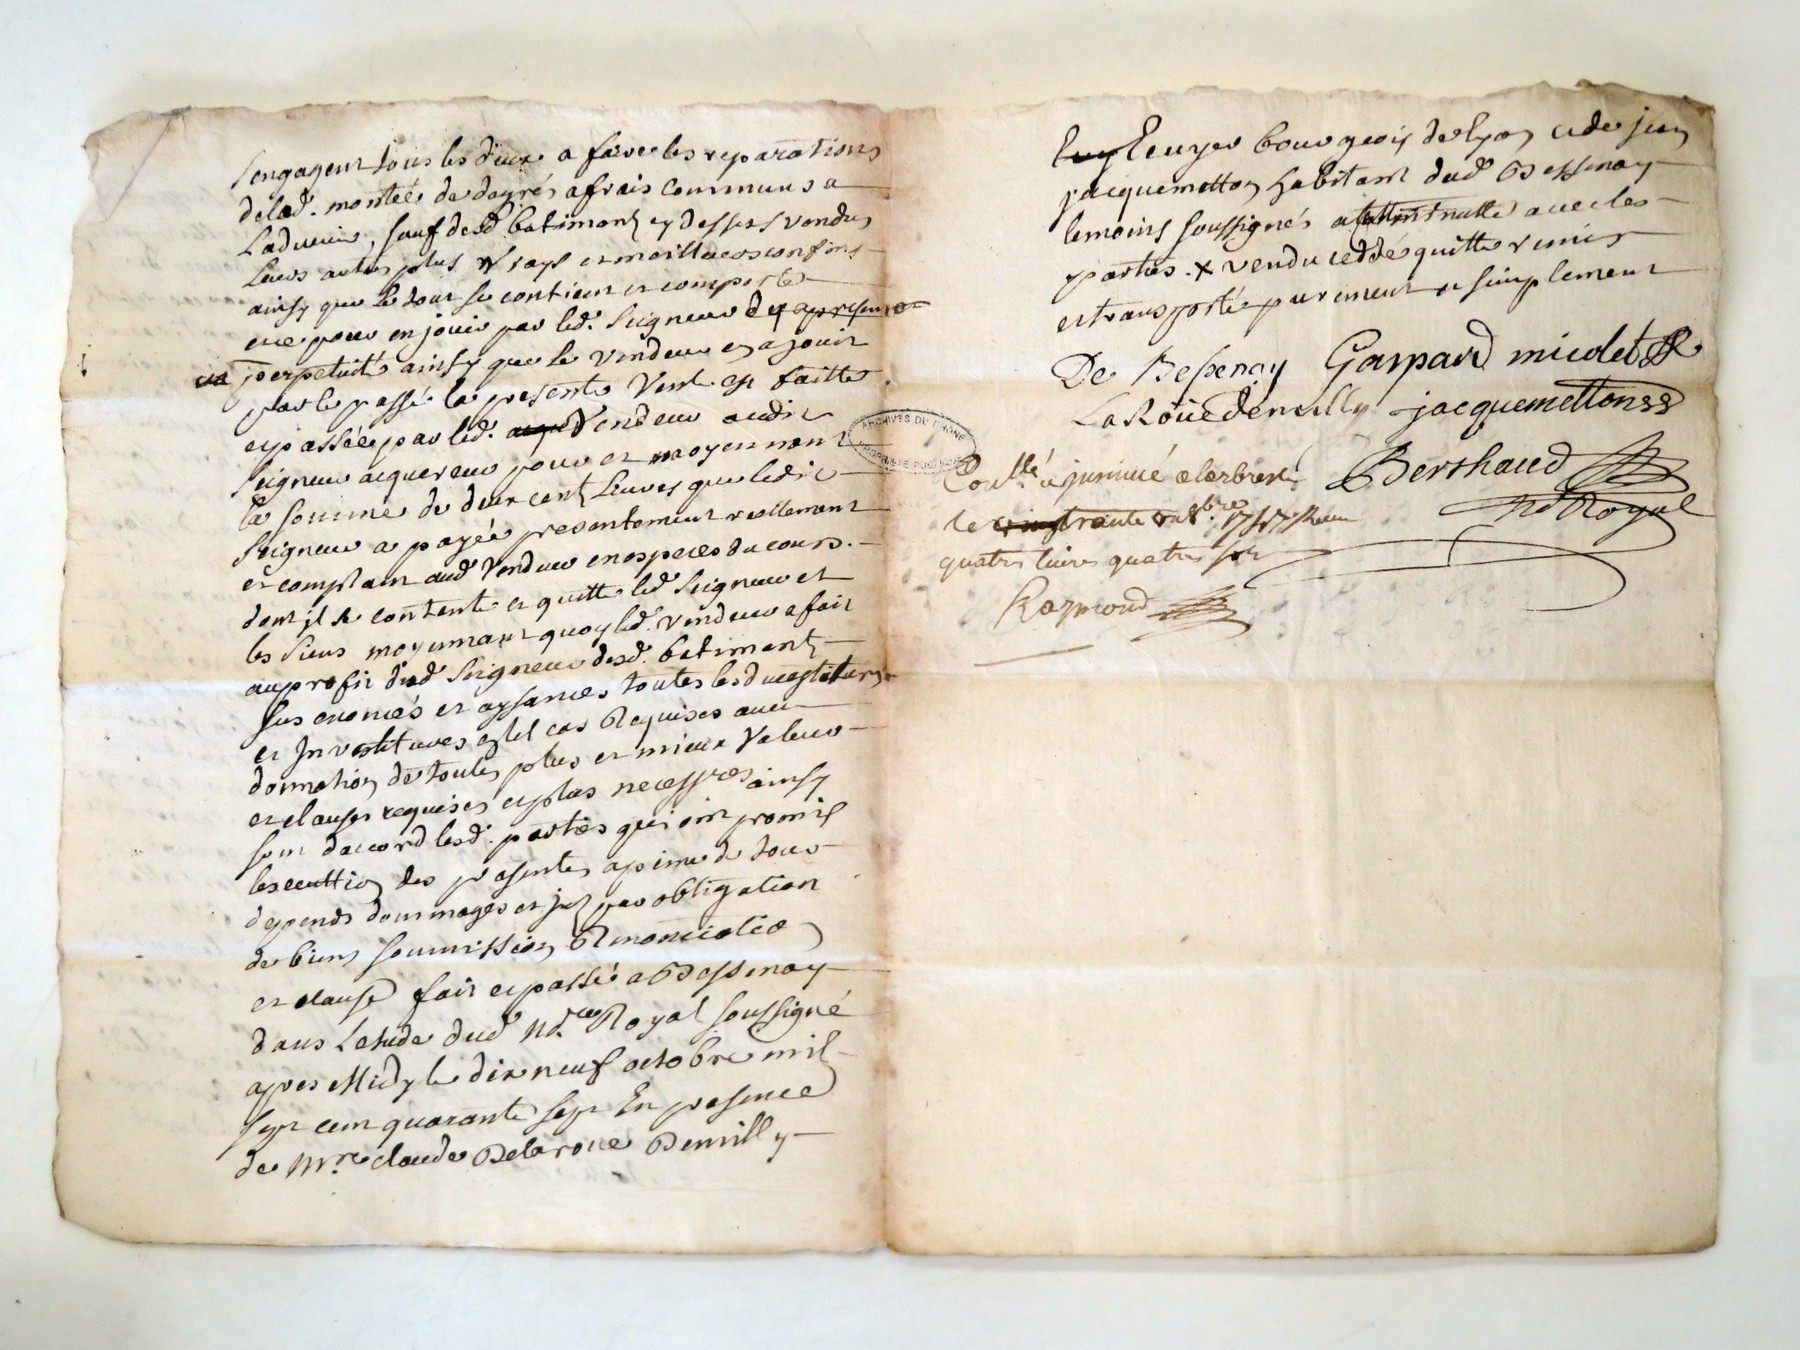 sengagent tous les deux a faire les reparations
delad. montée de degrés a frais communs a
Ladvenir, sauf desd. batiments cy dessus vendus
Leurs autres plus vrays et meilleurs confins
ainsy que le tout se contient et comporte
pour en jouir par led. Seigneur
perpetuité ainsy que le vendeur en a jouit
par le passé la presente vente est faitte
et passée par led. Vendeur audit
Seigneur acquereur pour et moyennant
la somme de deux cent Livres que ledit
Seigneur a payée presentement reellement
et comptant aud. Vendeur en especes du cours.
dont jl se contente et quitte led. Seigneur et
les siens moyennant quoy led. vendeur a fait
au profit dud. Seigneur desd. batiments
sus enoncés et aysances toutes les
et Investitures en tel cas Requises avec
donnation de toutes plus et mieux Valeur
et clauses requises et plus necessres ainsy
sont daccord lesd. parties qui ont promis
lexecuttion des presentes a peine de tous
depends dommages et jnt par obligation
de biens soumission Renonciation
et clause fait et passé a Bessenay
dans Letude dud. Nre Royal soussigné
apres Midy le dix neuf octobre mil
sept cent quarante sept En presence
de Mre claude Delaroue Demilly
bourgeois de lyon et de jean
jacquemetton habitant dud. Bessenay
temoins soussignés avec les
parties. x vendu ceddé quitté remis
et transporté purement et simplement
De Bessenay Gaspard micolet
LaRoüe demilly jacquemetton
ARCHIVES DU RHONE
PROPRIETE PUBLIQUE
Conllé a jnsinué a larbresle Berthaud
le trente 8bre 1747 Reçu Nre Royal
quatre livres quatre sols
Raymond